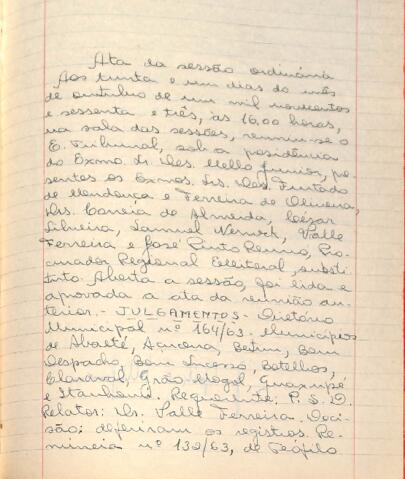 Ata da sessão ordinária
Aos trinta e um dias do mês
de outubro de um mil novecentos
e sessenta e três, às 16,00 horas,
na sala das sessões, reuniu-se o
E. Tribunal, sob a presidência
do Exmo. Sr. Des. Mello Junior, pre-
sentes os Exmos. Srs. Des. Furtado
de Mendonça e Ferreira de Oliveira,
Drs. Correia de Almeida, Cézar
Silveira, Samuel Werneck, Valle
Ferreira e José Pinto Renno, Pro-
curador Regional Eleitoral, substi-
tuto. Aberta a sessão, foi lida e
aprovada a ata da reunião an-
terior. - JULGAMENTOS - Diretório
Municipal nº 164/63. Municípios
de Abaeté, Açucena, Betim, Bom
Despacho, Bom Sucesso, Botelhos,
Claraval, Grão Mogol, Guaxupé
e Itanhomi. Requerente: P. S. D.
Relator: Dr. Valle Ferreira. Deci-
são: deferiram os registros. Re-
núncia nº 132/63, de Teófilo